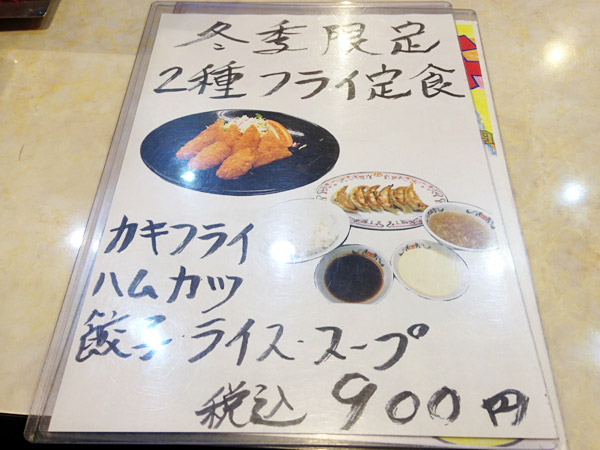 冬季限定
2種フライ定食
カキフライ
ハムカツ
餃子・ライス・スープ
税込 900円